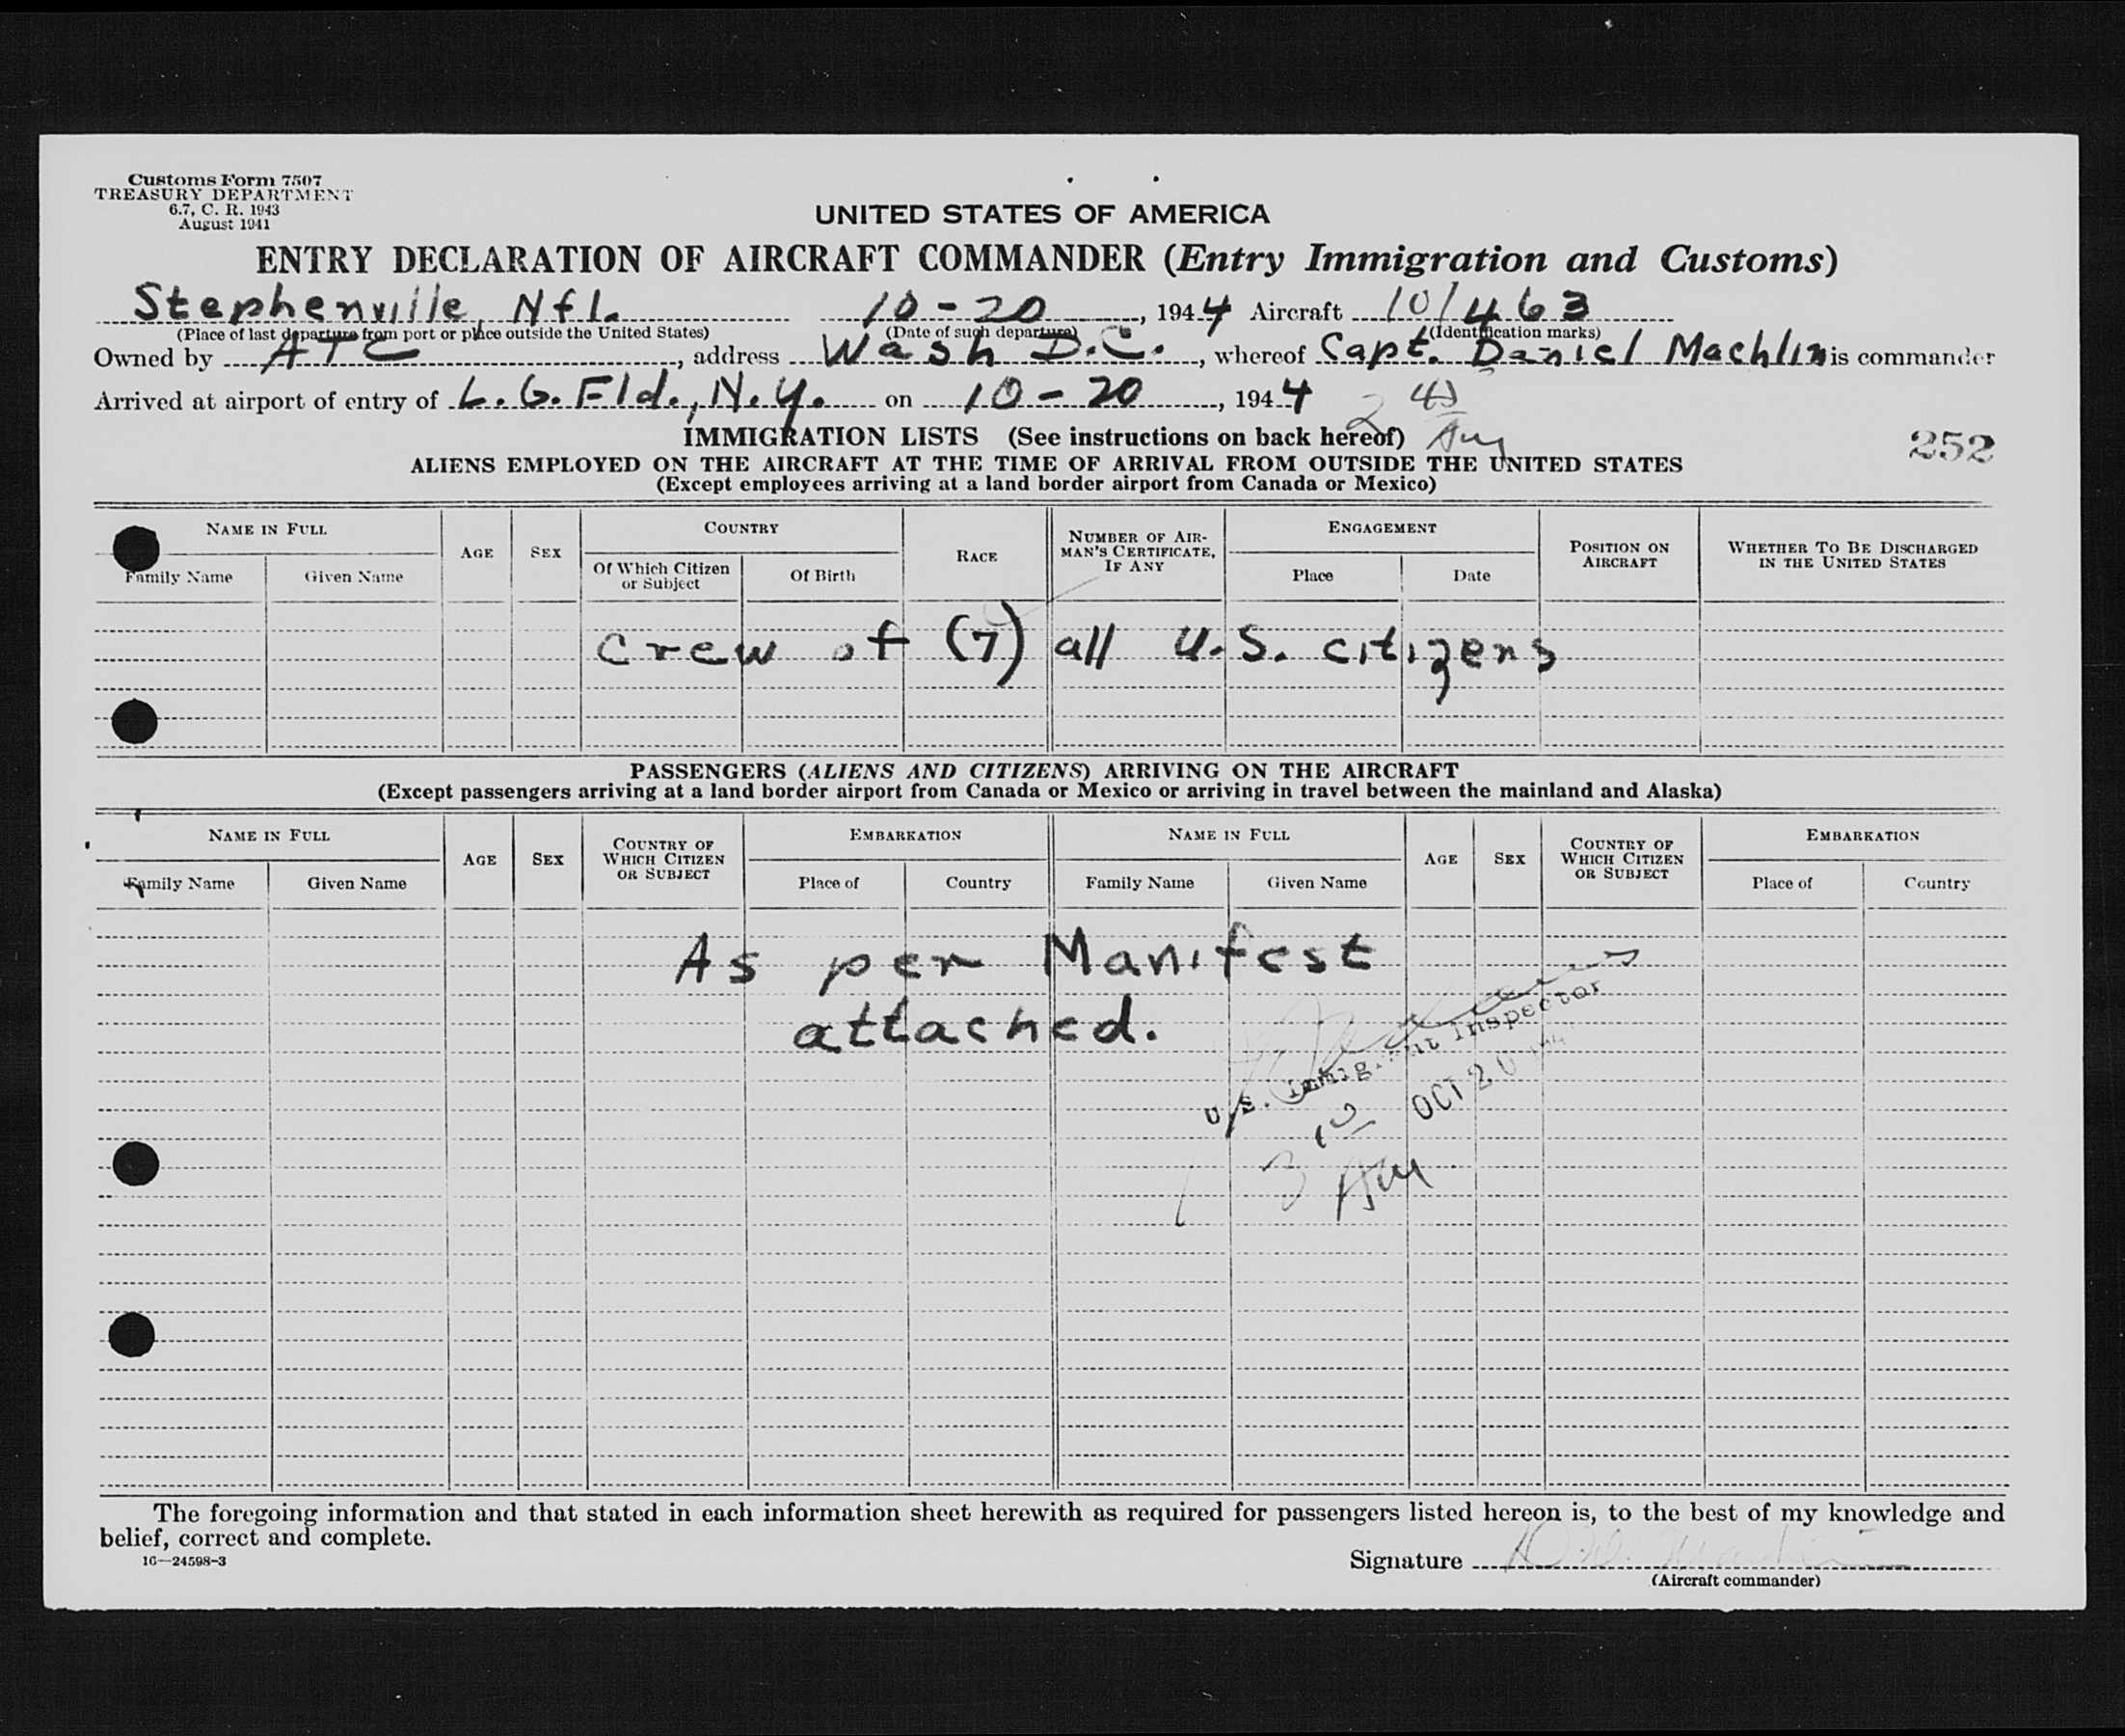 Customs Form 7507
TREASURY DEPARTMENT
6.7, C. R. 1943
August 1941
UNITED STATES OF AMERICA
ENTRY DECLARATION OF AIRCRAFT COMMANDER (Entry Immigration and Customs)
Stephenville, Nfl. 10-20, 1944 Aircraft 10/463
(Place of last departure from port or place outside the United States) (Date of such departure) (Identification marks)
Owned by ATC, address Wash D.C., whereof Capt. Daniel Machlin is commander
Arrived at airport of entry of L.G. Fld., N.Y. on 10-20, 1944
IMMIGRATION LISTS (See instructions on back hereof)
252
ALIENS EMPLOYED ON THE AIRCRAFT AT THE TIME OF ARRIVAL FROM OUTSIDE THE UNITED STATES
(Except employees arriving at a land border airport from Canada or Mexico)
NAME IN FULL COUNTRY ENGAGEMENT
AGE SEX RACE NUMBER OF AIRMAN'S CERTIFICATE, IF ANY POSITION ON AIRCRAFT WHETHER TO BE DISCHARGED IN THE UNITED STATES
Family Name Given Name Of Which Citizen or Subject Of Birth Place Date
crew of (7) all U.S. citizens
PASSENGERS (ALIENS AND CITIZENS) ARRIVING ON THE AIRCRAFT
(Except passengers arriving at a land border airport from Canada or Mexico or arriving in travel between the mainland and Alaska)
NAME IN FULL AGE SEX COUNTRY OF WHICH CITIZEN OR SUBJECT EMBARKATION NAME IN FULL AGE SEX COUNTRY OF WHICH CITIZEN OR SUBJECT EMBARKATION
Family Name Given Name Place of Country Family Name Given Name Place of Country
As per Manifest
attached.
U.S. Immigrant Inspector
OCT 20
The foregoing information and that stated in each information sheet herewith as required for passengers listed hereon is, to the best of my knowledge and
belief, correct and complete.
16—24598-3
Signature
(Aircraft commander)